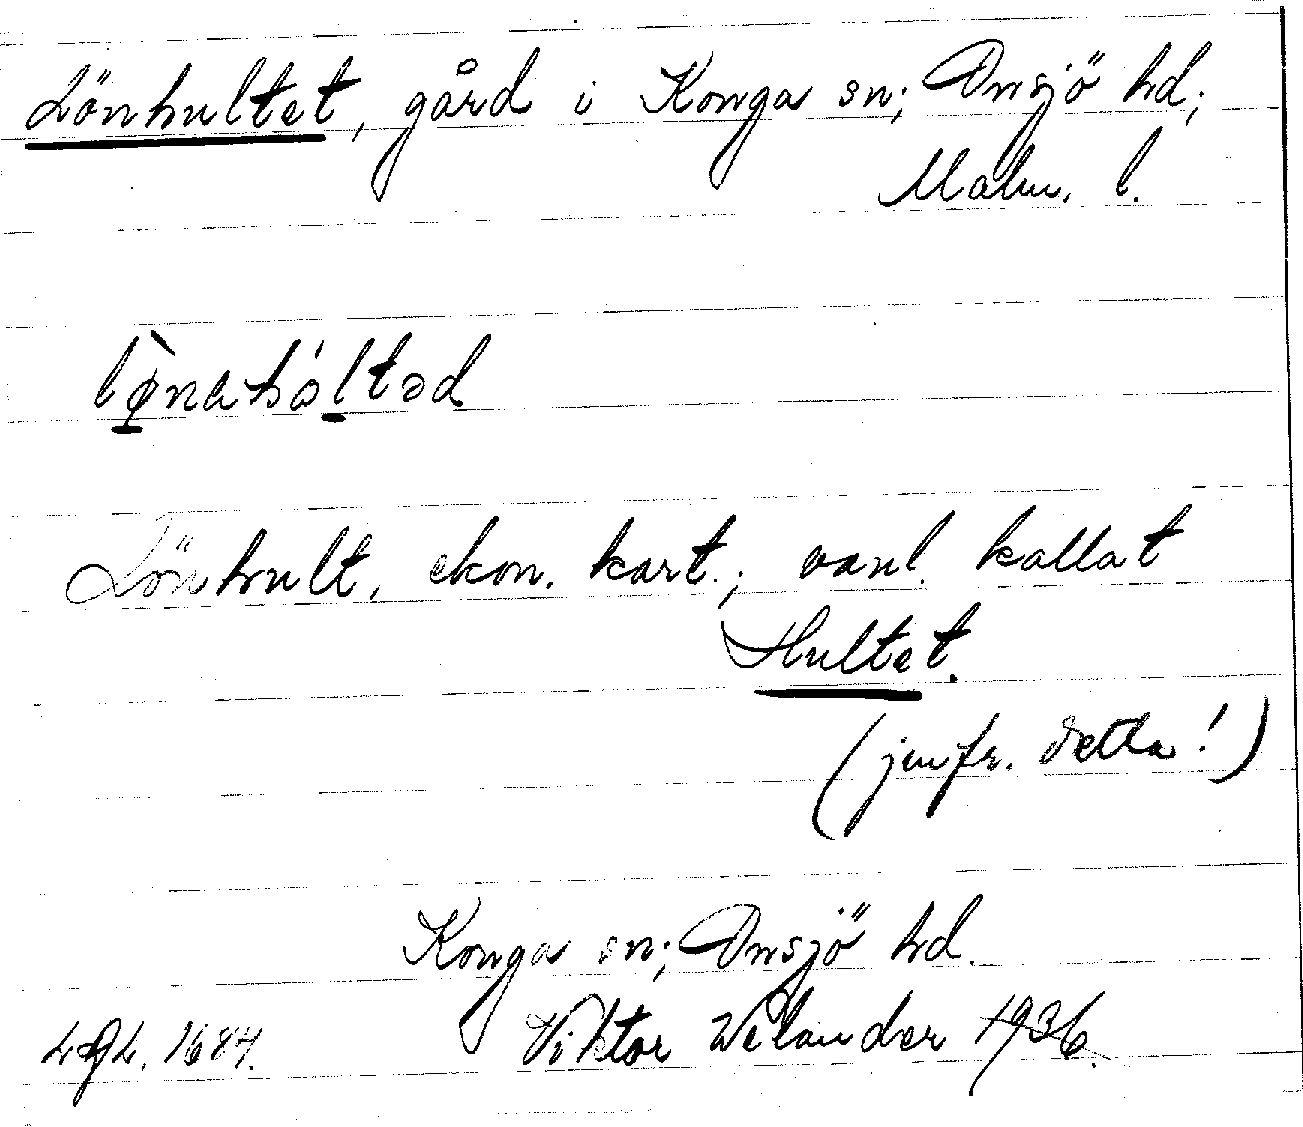 Lönhultet, gård i Konga sn; Onsjö hd;
Malm. l.
lø̀nahóltəd
Lönhult, ekon. kart.; vanl. kallat
Hultet.
(jmfr. detta!)
Konga sn; Onsjö hd.
Viktor Welander 1936.
1684.